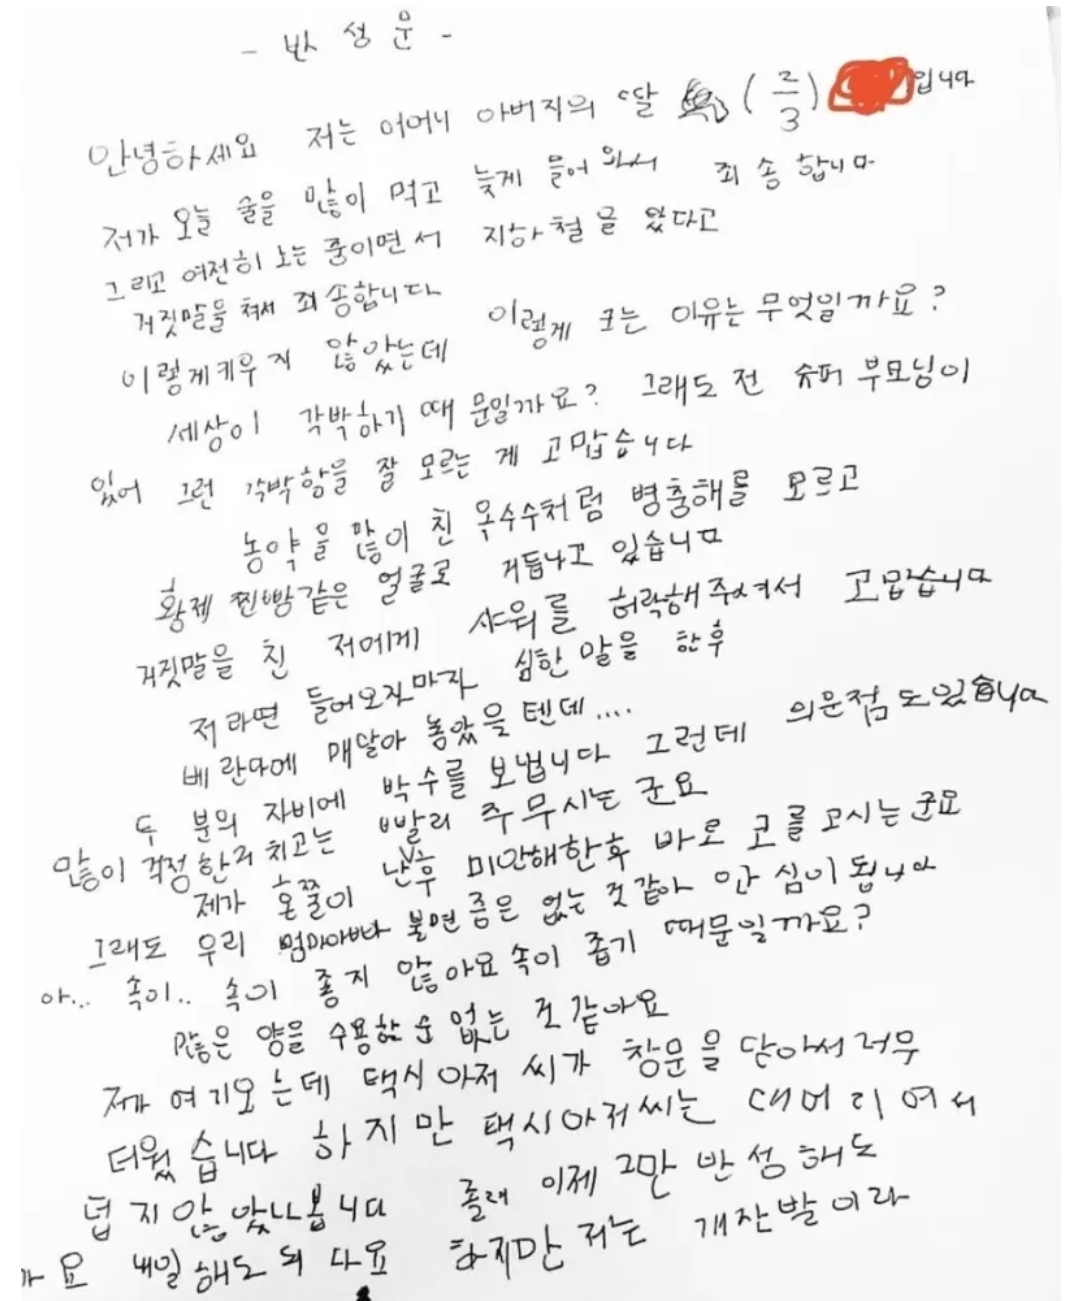 - 반성문 -
안녕하세요 저는 어머니 아버지의 딸 (2/3) 입니다
저가 오늘 술을 많이 먹고 늦게 들어와서 죄송합니다
그리고 여전히 노는 중이면서 지하철을 탔다고
거짓말을 쳐서 죄송합니다
이렇게 키우지 않았는데 이렇게 크는 이유는 무엇일까요?
세상이 각박하기 때문일까요? 그래도 전 슈퍼 부모님이
있어 그런 각박함을 잘 모르는 게 고맙습니다
농약을 많이 친 옥수수처럼 병충해를 모르고
황제 찐빵같은 얼굴로 거듭나고 있습니다
거짓말을 친 저에게 샤워를 허락해주셔서 고맙습니다
저라면 들어오자마자 심한 말을 한후
베란다에 매달아 놓았을 텐데....
두 분의 자비에 박수를 보냅니다 그런데 의문점도 있습니다
많이 걱정한거 치고는 빨리 주무시는 군요
제가 혼쭐이 난후 미안해한후 바로 코를 고시는군요
그래도 우리 엄마아빠 불면증은 없는 것 같아 안심이 됩니다
아... 속이.. 속이 좋지 않아요 속이 좁기 때문일까요?
많은 양을 수용할 순 없는 것 같아요
제가 여기오는데 택시 아저씨가 창문을 닫아서 너무
더웠습니다 하지만 택시아저씨는 대머리여서
덥지 않았나봅니다 졸려 이제 그만 반성해도
내일 해도 되 다요 하지만 저는 개잔발이라